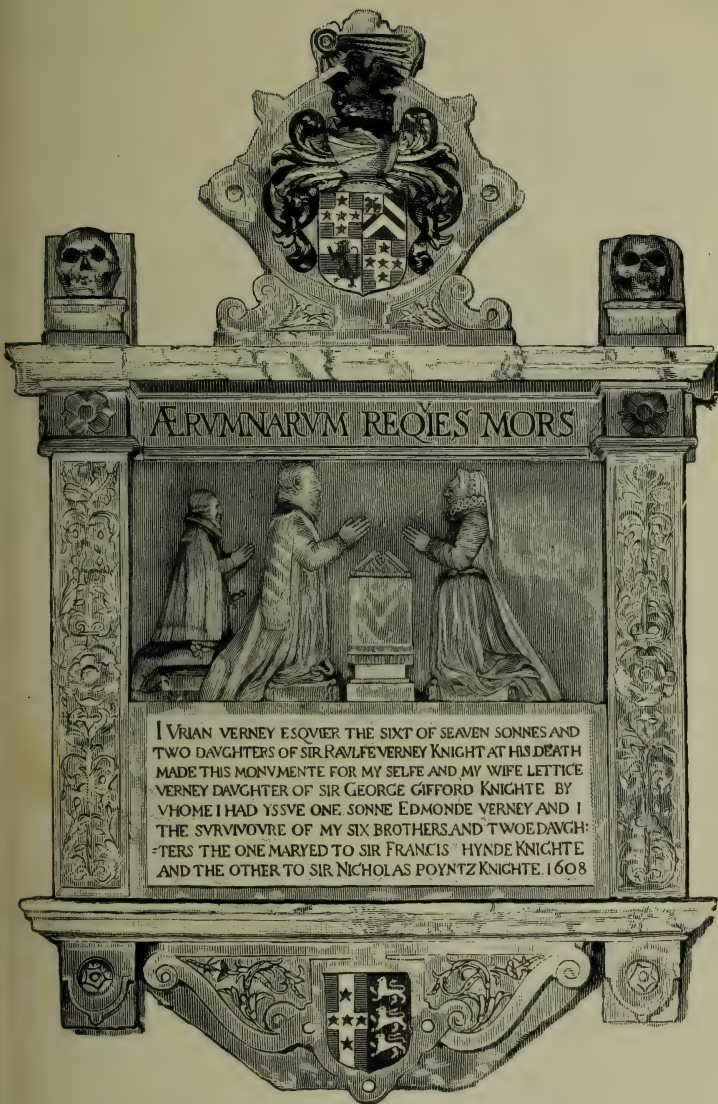 ÆRVMNARVM REQVIES MORS
I VRIAN VERNEY ESQVIER THE SIXT OF SEAVEN SONNES AND
TWO DAVGHTERS OF SIR RAVLFE VERNEY KNIGHT AT HIS DEATH
MADE THIS MONVMENTE FOR MY SELFE AND MY WIFE LETTICE
VERNEY DAVGHTER OF SIR GEORGE GIFFORD KNIGHTE BY
VHOME I HAD YSSVE ONE SONNE EDMONDE VERNEY AND I
THE SVRVIVOVRE OF MY SIX BROTHERS AND TWOE DAVGH:
=TERS THE ONE MARYED TO SIR FRANCIS HYNDE KNIGHTE
AND THE OTHER TO SIR NICHOLAS POYNTZ KNIGHTE. 1608